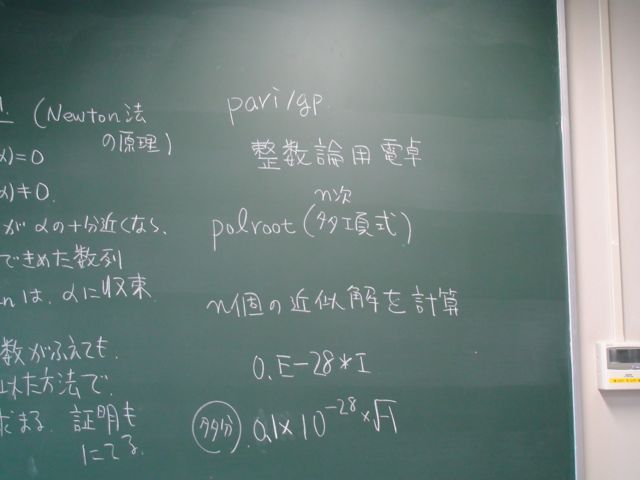 (Newton法
の原理)
α)=0
α)≠0.
が αの十分近くなら.
できめた数列
nは、αに収束.
数がふえても.
れた方法で.
求まる. 証明も
にてる.
pari/gp.
整数論用電卓
n次
polroot(多項式)
n個の近似解を計算
0.E-28*I
多分. 0.1×10⁻²⁸×√-1